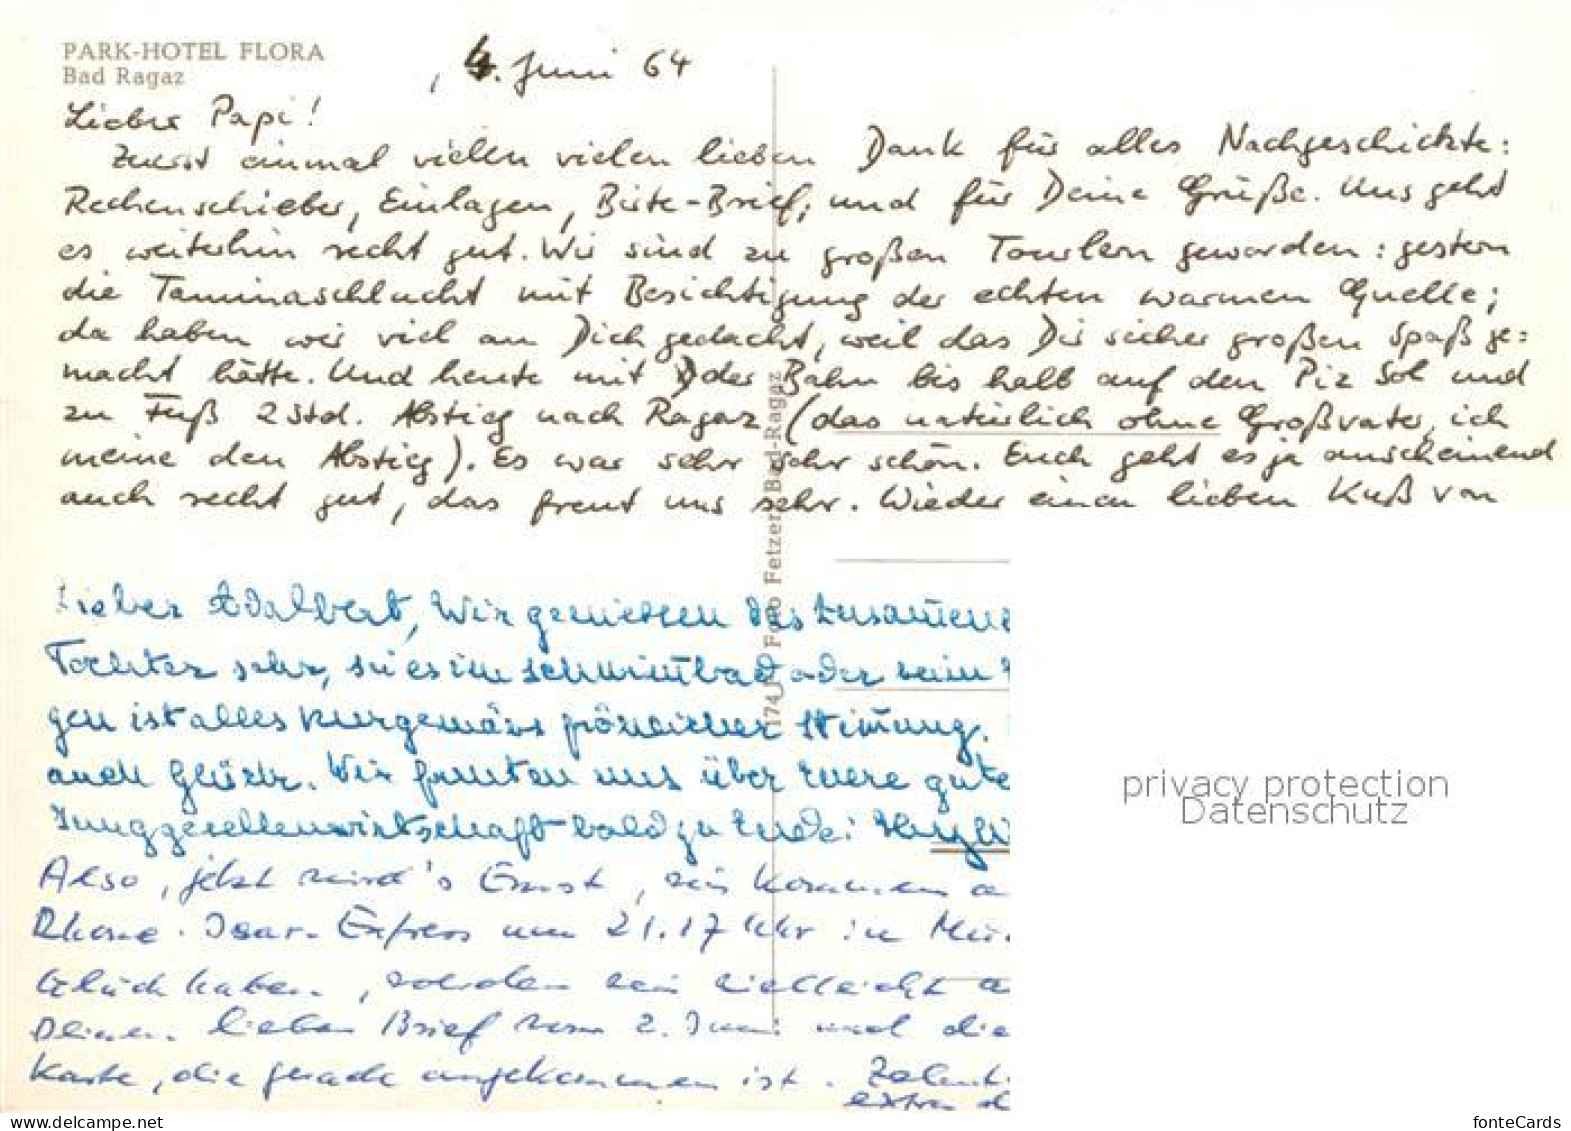 PARK-HOTEL FLORA
Bad Ragaz
, 4. Juni 64
Lieber Papi!
Zuerst einmal vielen vielen lieben Dank für alles Nachgeschickte:
Rechenschieber, Einlagen, Biste-Brief; und für Deine Grüße. Uns geht
es weiterhin recht gut. Wir sind zu großen Tourlern geworden: gestern
die Taminaschlucht mit Besichtigung der echten warmen Quelle;
da haben wir viel an Dich gedacht, weil das Dir sicher großen Spaß ge=
macht hätte. Und heute mit der Bahn bis halb auf den Piz Sol und
zu Fuß 2 Std. Abstieg nach Ragaz (das natürlich ohne Großvater, ich
meine den Abstieg). Es war sehr sehr schön. Euch geht es ja anscheinend
auch recht gut, das freut uns sehr. Wieder einen lieben Kuß von
Lieber Adalbert, Wir geniessen das Zusammens
Tochter sehr, sei es im Schwimmbad oder beim
gen ist alles kurgemäss fröhlicher Stimmung.
auch Glück. Wir freuten uns über Euere gute
Junggesellenwirtschaft bald zu Ende!
Also, jetzt wird's Ernst, wir kommen a
Rhone-Isar-Express um 21.17 Uhr in Mün
Glück haben, werden wir vielleicht a
Deinen lieben Brief vom 2. Juni und die
Karte, die gerade angekommen ist.
extra d
174 J Foto Fetzer, Bad-Ragaz
privacy protection
Datenschutz
www.delcampe.net
fonteCards